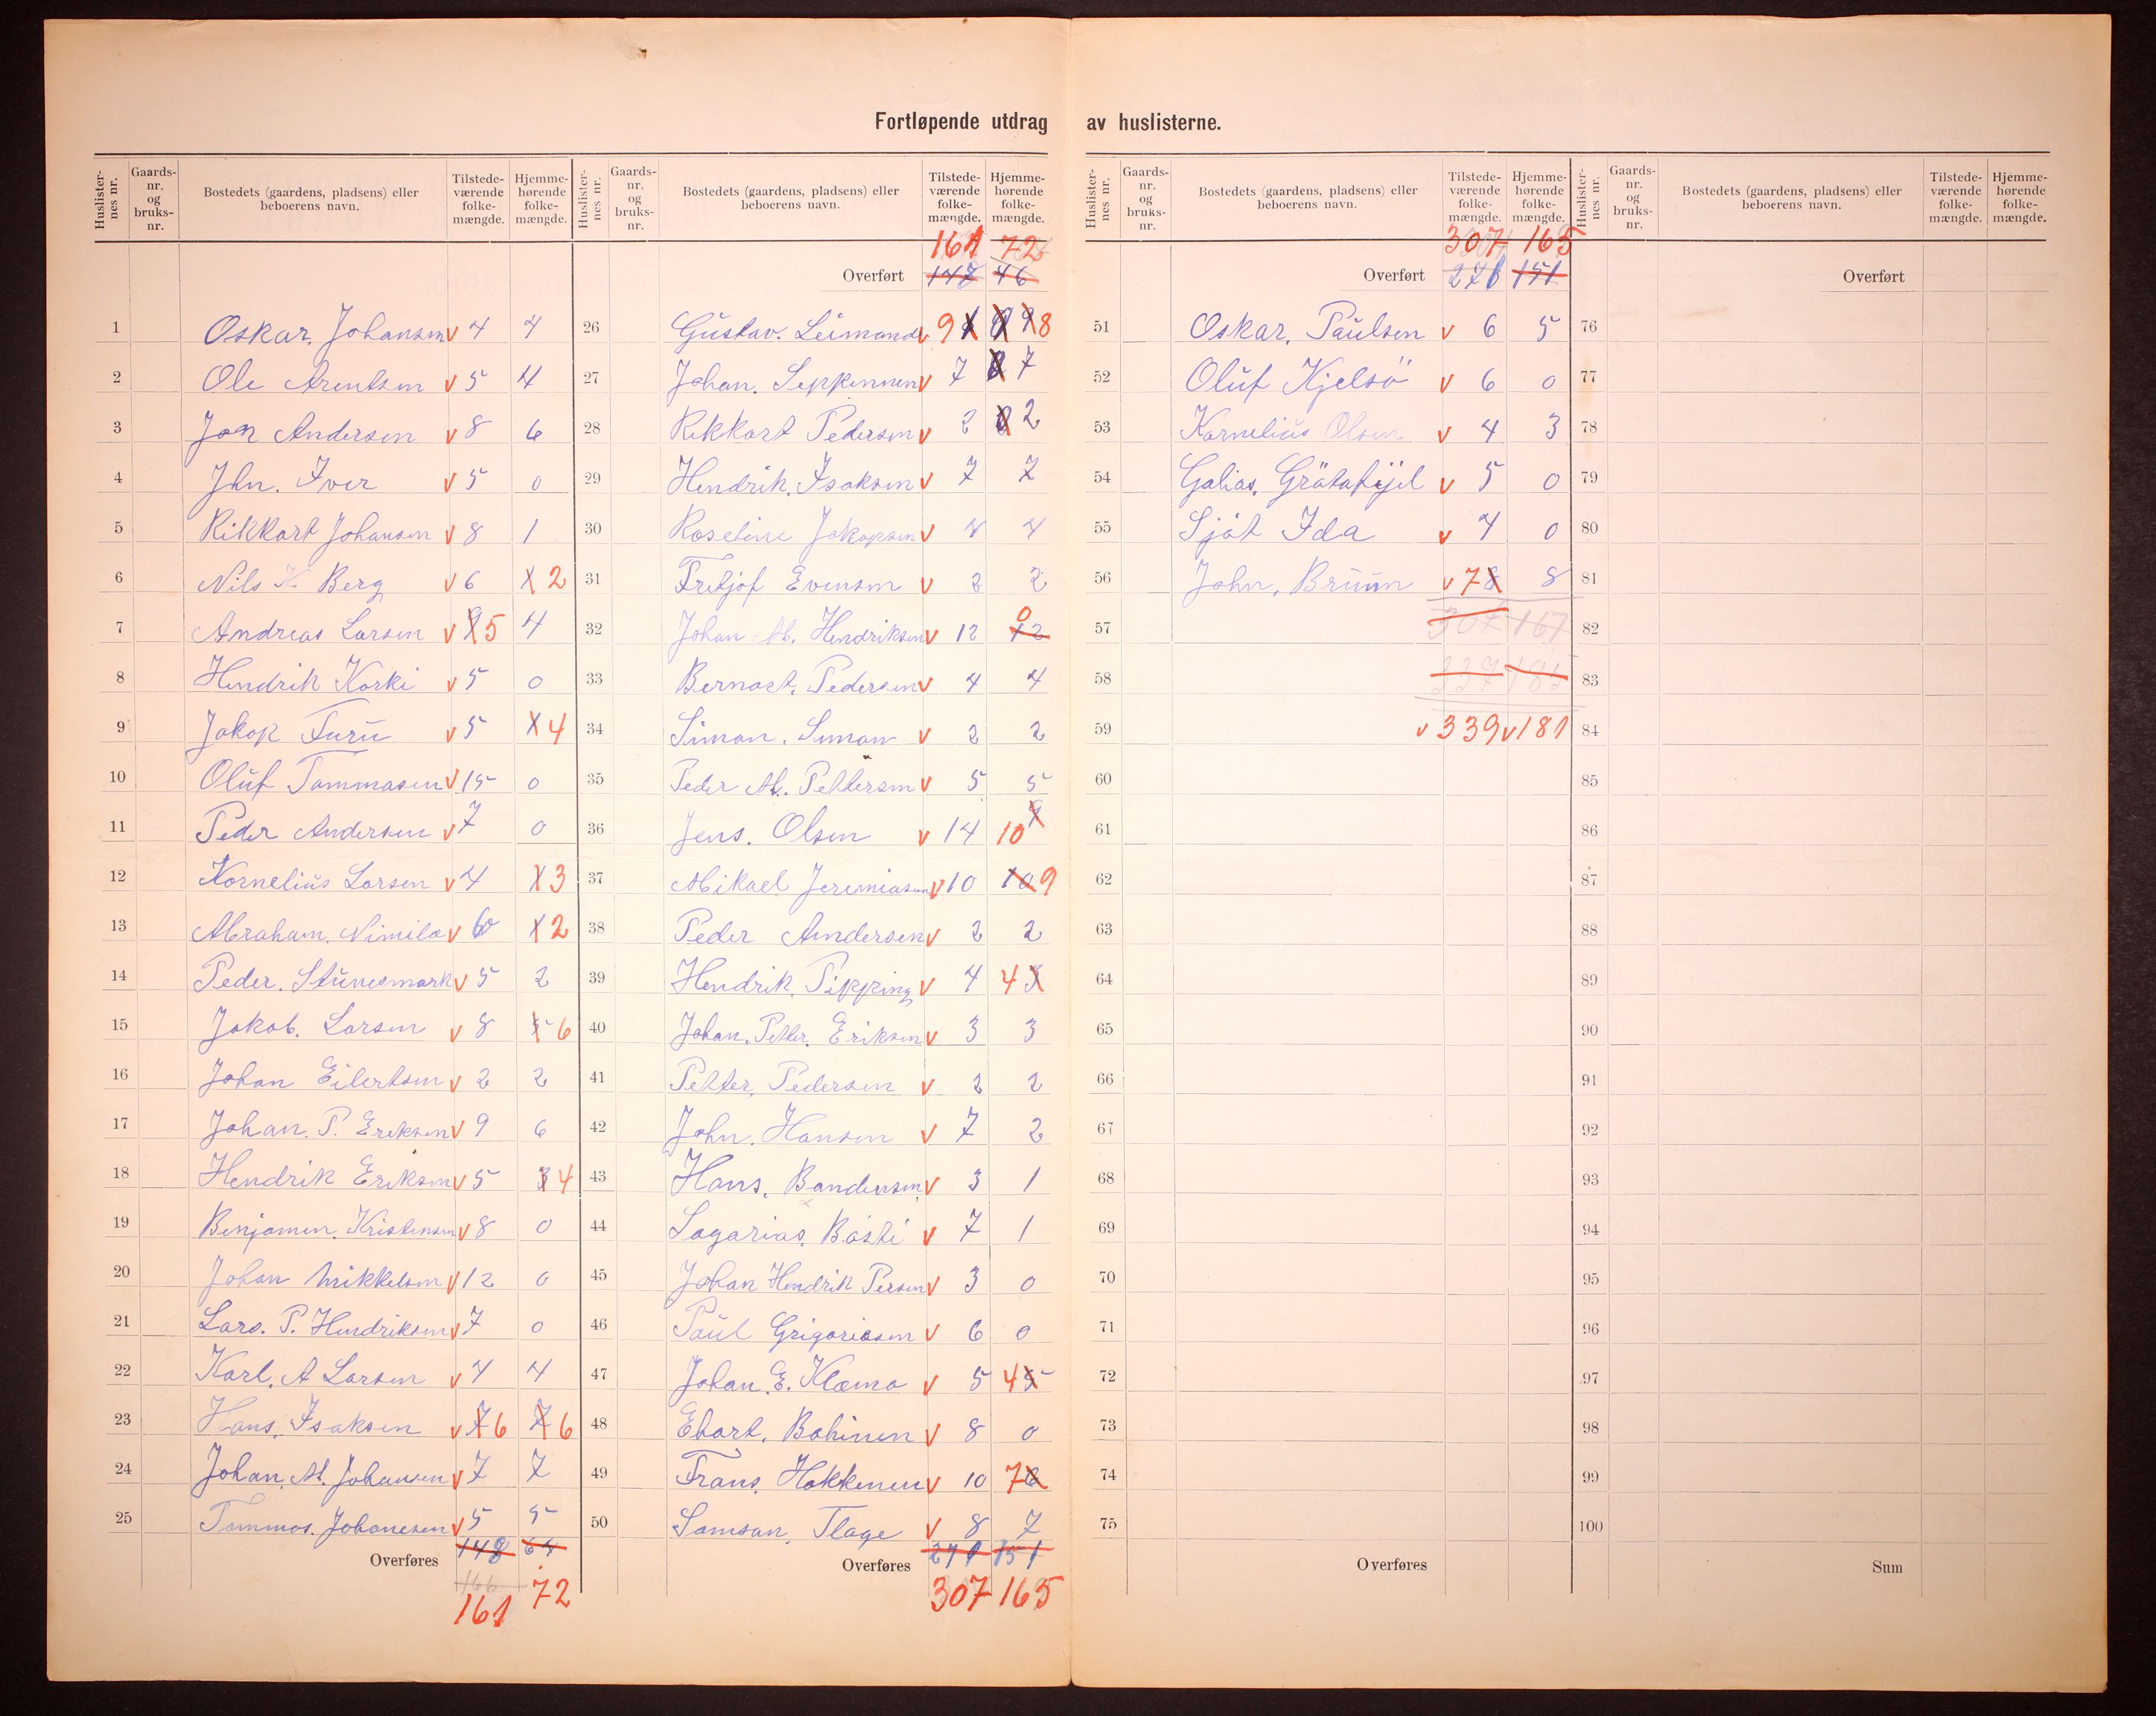 Fortløpende utdrag av huslisterne.
Huslisternes nr. Gaards-nr. og bruks-nr. Bostedets (gaardens, pladsens) eller beboerens navn. Tilstede-værende folke-mængde. Hjemme-hørende folke-mængde.
1 Oskar. Johansen v 4 4
2 Ole Arentsen v 5 4
3 Jon Andersen v 8 6
4 Jhn. Iver v 5 0
5 Rikkart Johansen v 8 1
6 Nils K. Berg v 6 2
7 Andreas Larsen v 5 4
8 Hendrik Korki v 5 0
9 Jakop Furu v 5 4
10 Oluf Tommasen v 15 0
11 Peder Andersen v 7 0
12 Kornelius Larsen v 4 3
13 Abraham. Nimila v 6 2
14 Peder. Stunesmark v 5 2
15 Jakob. Larsen v 8 6
16 Johan Eilertsen v 2 2
17 Johan. P. Eriksen v 9 6
18 Hendrik Eriksen v 5 3 4
19 Benjamin. Kristensen v 8 0
20 Johan Mikkelsen v 12 0
21 Lars. P. Hendriksen v 7 0
22 Karl. A Larsen v 4 4
23 Hans. Isaksen v 7 6 7 6
24 Johan. M. Johansen v 7 7
25 Tommas. Johanesen v 5 5
Overføres 148 64
166
161 72
Huslisternes nr. Gaards-nr. og bruks-nr. Bostedets (gaardens, pladsens) eller beboerens navn. Tilstede-værende folke-mængde. Hjemme-hørende folke-mængde.
161 72
Overført 148 46
26 Gustav. Leimand v 9 8
27 Johan. Seppennen v 7 7
28 Rikkart Pedersen v 2 2
29 Hendrik. Isaksen v 7 7
30 Roseline Jakopsen v 4 4
31 Fritjof Evensen v 2 2
32 Johan M. Hendriksen v 12 12 0
33 Bernart. Pedersen v 4 4
34 Simon. Simon v 2 2
35 Peder M. Pettersen v 5 5
36 Jens. Olsen v 14 10 9
37 Mikael Jeremiasen v 10 10 9
38 Peder Andersen v 2 2
39 Hendrik. Pipping v 4 4
40 Johan. Petter. Eriksen v 3 3
41 Petter, Pedersen v 2 2
42 John. Hansen v 7 2
43 Hans. Bandersen v 3 1
44 Sagarias. Båsti v 7 1
45 Johan Hendrik Persen v 3 0
46 Paul Grigoriesen v 6 0
47 Johan. E. Klemo v 5 4 5
48 Ebart. Bohinen v 8 0
49 Frans. Hokkenen v 10 7 6
50 Samson, Tlage v 8 7
Overføres 271 151
307 165
Huslisternes nr. Gaards-nr. og bruks-nr. Bostedets (gaardens, pladsens) eller beboerens navn. Tilstede-værende folke-mængde. Hjemme-hørende folke-mængde.
307 165
Overført 271 151
51 Oskar. Paulsen v 6 5
52 Oluf Kjelsö v 6 0
53 Kornelius Olsen v 4 3
54 Galias. Grätafijel v 5 0
55 Sjåt Ida v 4 0
56 John, Bruun v 7 8 8
57 307 167
58 337 185
59 v 339 v 181
60
61
62
63
64
65
66
67
68
69
70
71
72
73
74
75
Overføres
Huslisternes nr. Gaards-nr. og bruks-nr. Bostedets (gaardens, pladsens) eller beboerens navn. Tilstede-værende folke-mængde. Hjemme-hørende folke-mængde.
Overført
76
77
78
79
80
81
82
83
84
85
86
87
88
89
90
91
92
93
94
95
96
97
98
99
100
Sum